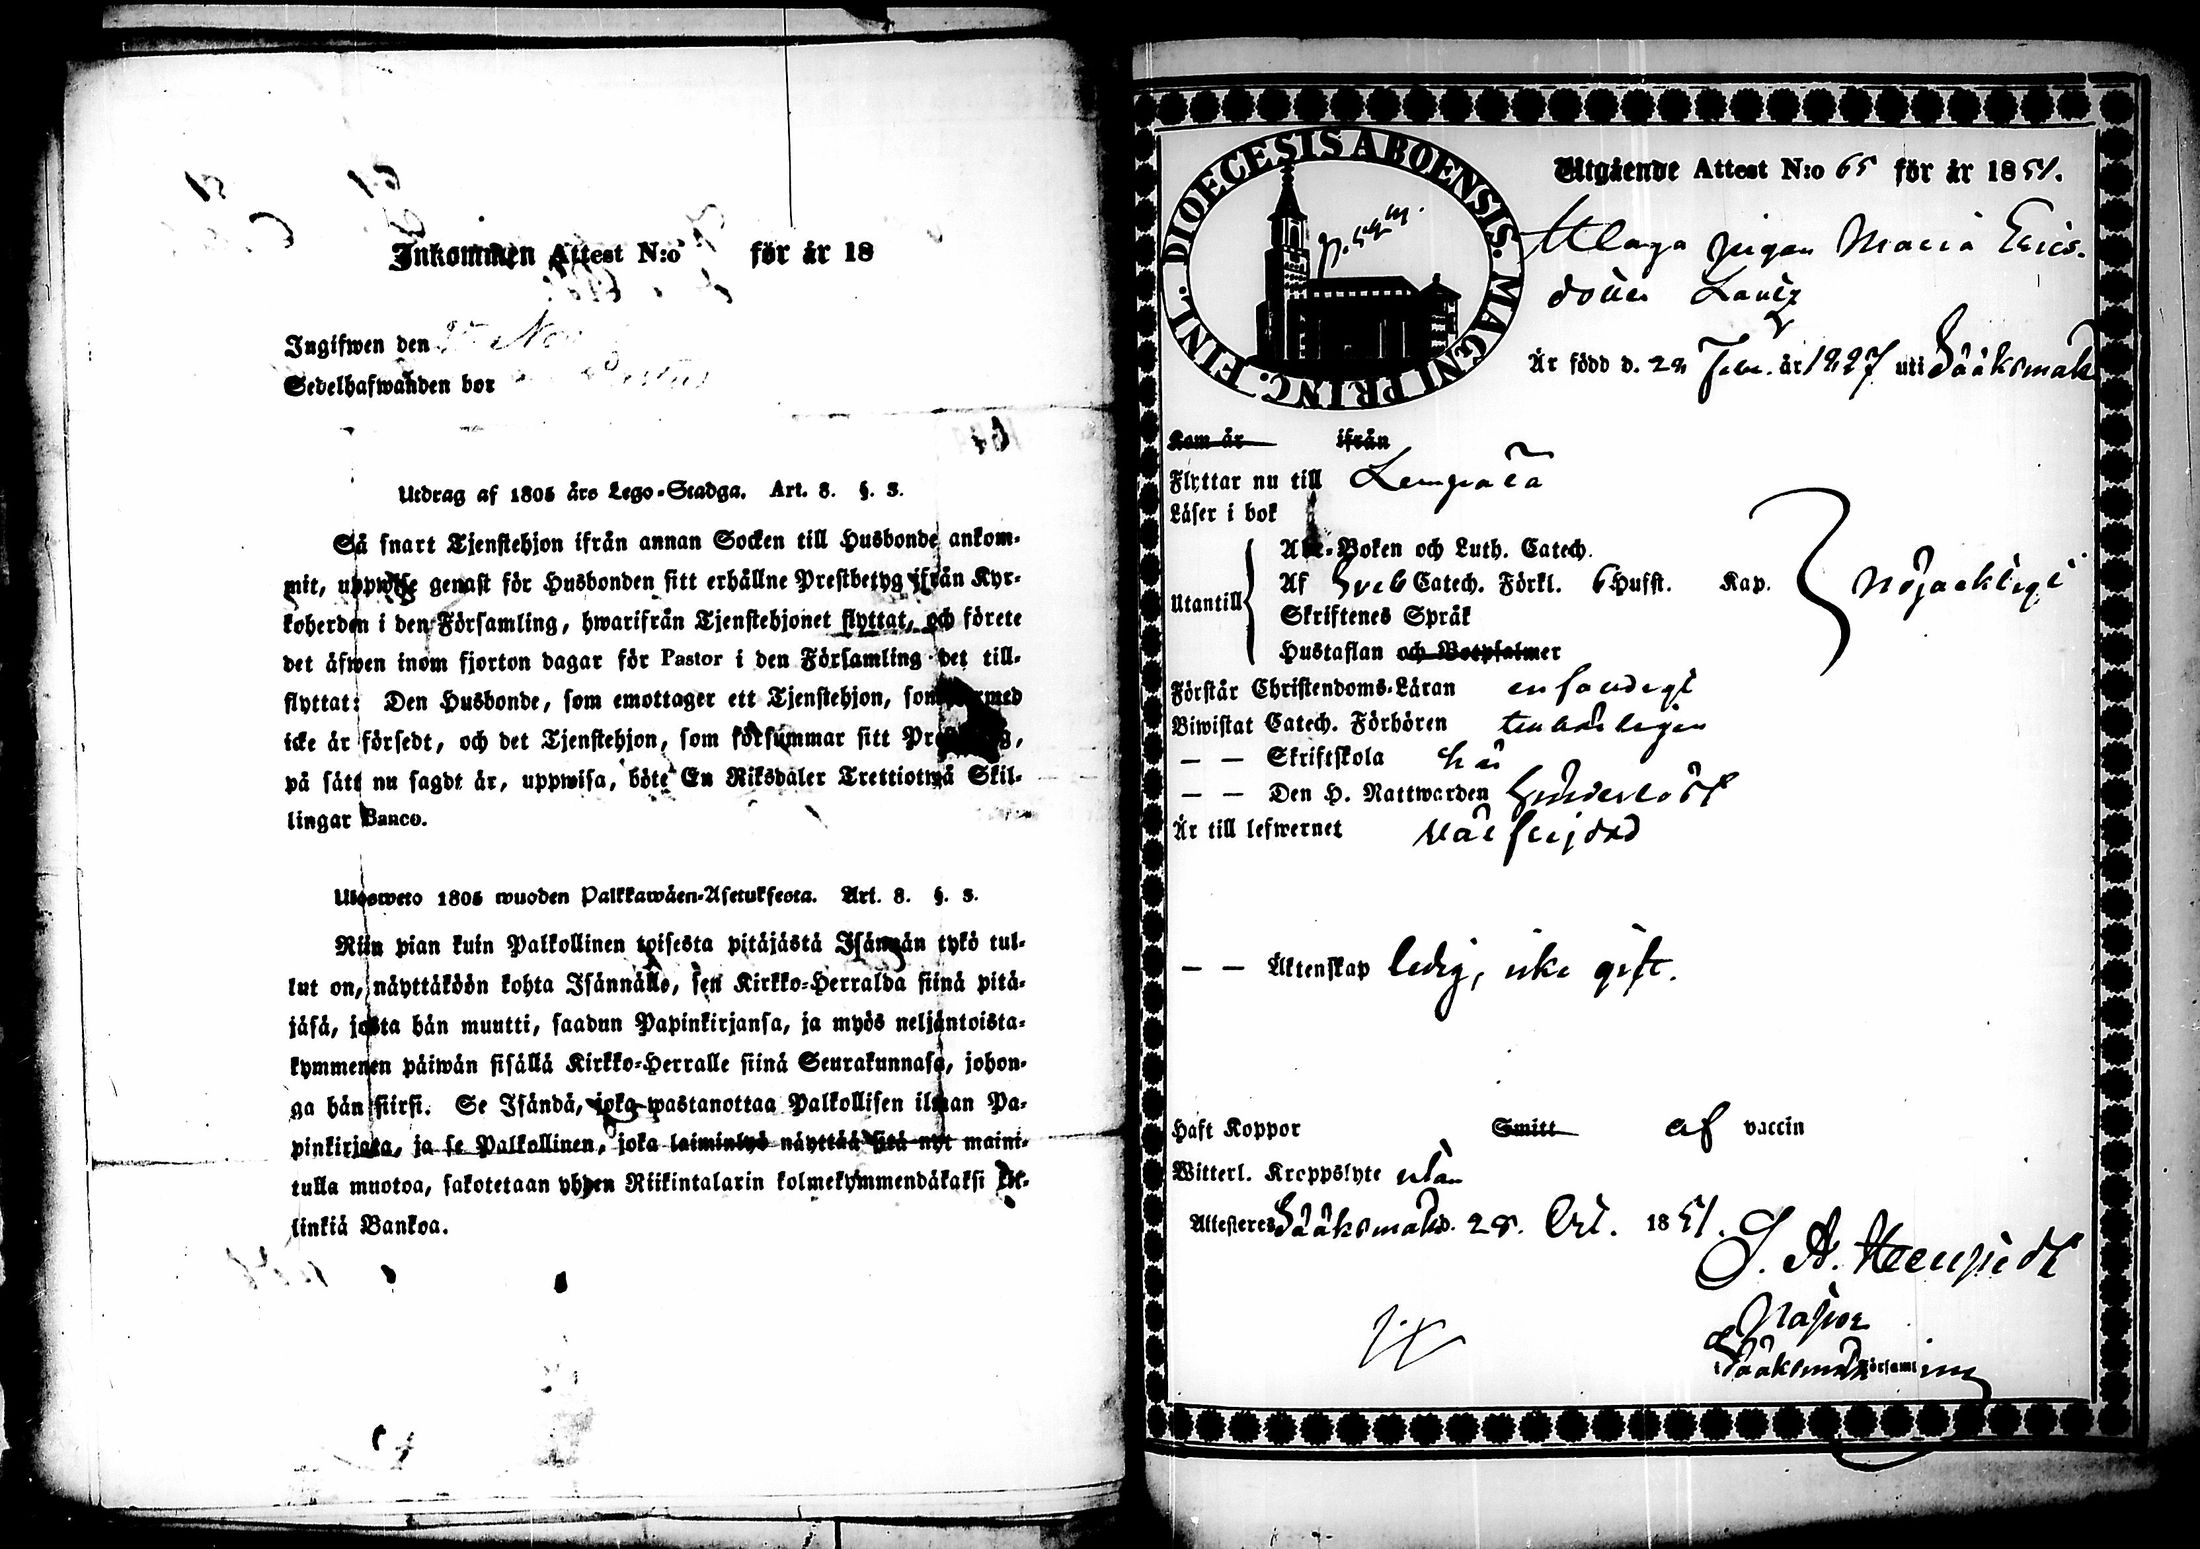 Inkommen Attest N:o för år 18
Ingifwen den
Sedelhafwanden bor
Utdrag af 1805 års Lego-Stadga. Art. 8. §. 3.
Så snart Tjenstehjon ifrån annan Socken till Husbonde ankom-
mit, uppwise genast för Husbonden sitt erhållne Prestbetyg ifrån Kyr-
koherden i den Församling, hwarifrån Tjenstehjonet flyttat, och förete
det äfwen inom fjorton dagar för Pastor i den Församling det till-
flyttat: Den Husbonde, som emottager ett Tjenstehjon, som
icke är försedt, och det Tjenstehjon, som försummar sitt
på sätt nu sagdt är, uppwisa, böte En Riksdaler Trettiotwå Skil-
lingar Banco.
Ulosweto 1805 wuoden Palkkawäen-Asetuksesta. Art. 8. §. 3.
Niin pian kuin Palkollinen toisesta pitäjästä Isännän tykö tul-
lut on, näyttäköön kohta Isännälle, sen Kirkko-Herralda siinä pitä-
jäsä, josta hän muutti, saadun Papinkirjansa, ja myös neljäntoista-
kymmenen päiwän sisällä Kirkko-Herralle siinä Seurakunnasa, johon-
ga hän siirsi. Se Isändä, joka wastanottaa Palkollisen ilman Pa-
pinkirjata, ja se Palkollinen, joka laiminlyö näyttää sitä nyt maini-
tulla muotoa, sakotetaan yhyen Riikintalarin kolmekymmendäkaksi kil-
linkiä Bankoa.
DIOECESIS ABOENSIS. MAGNI PRINC. FINL.
Utgående Attest N:o 65 för år 1851.
pigan Maria Erics-
dotter
Är född d. 28 Febr. år 1827 uti Sääksmäki
Kom år ifrån
Flyttar nu till Lempäälä
Läser i bok
Utantill
Abc-Boken och Luth. Catech.
Af Sveb Catech. Förkl. 6 Hufst. Kap.
Skriftenes Språk
Hustaflan och Botpsalmer
nöjaktligt
Förstår Christendoms-Läran enfaldigt
Biwistat Catech. Förhören
— — Skriftskola här
— — Den H. Nattwarden
Är till lefwernet wälfrejdad
— — Äktenskap ledig, icke gift.
Haft Koppor Smitt af vaccin
Witterl. Kroppslyte utan
Attesteres Sääksmäki d. 28. Oct. 1851.
Pastor
i Sääksmäki Församling